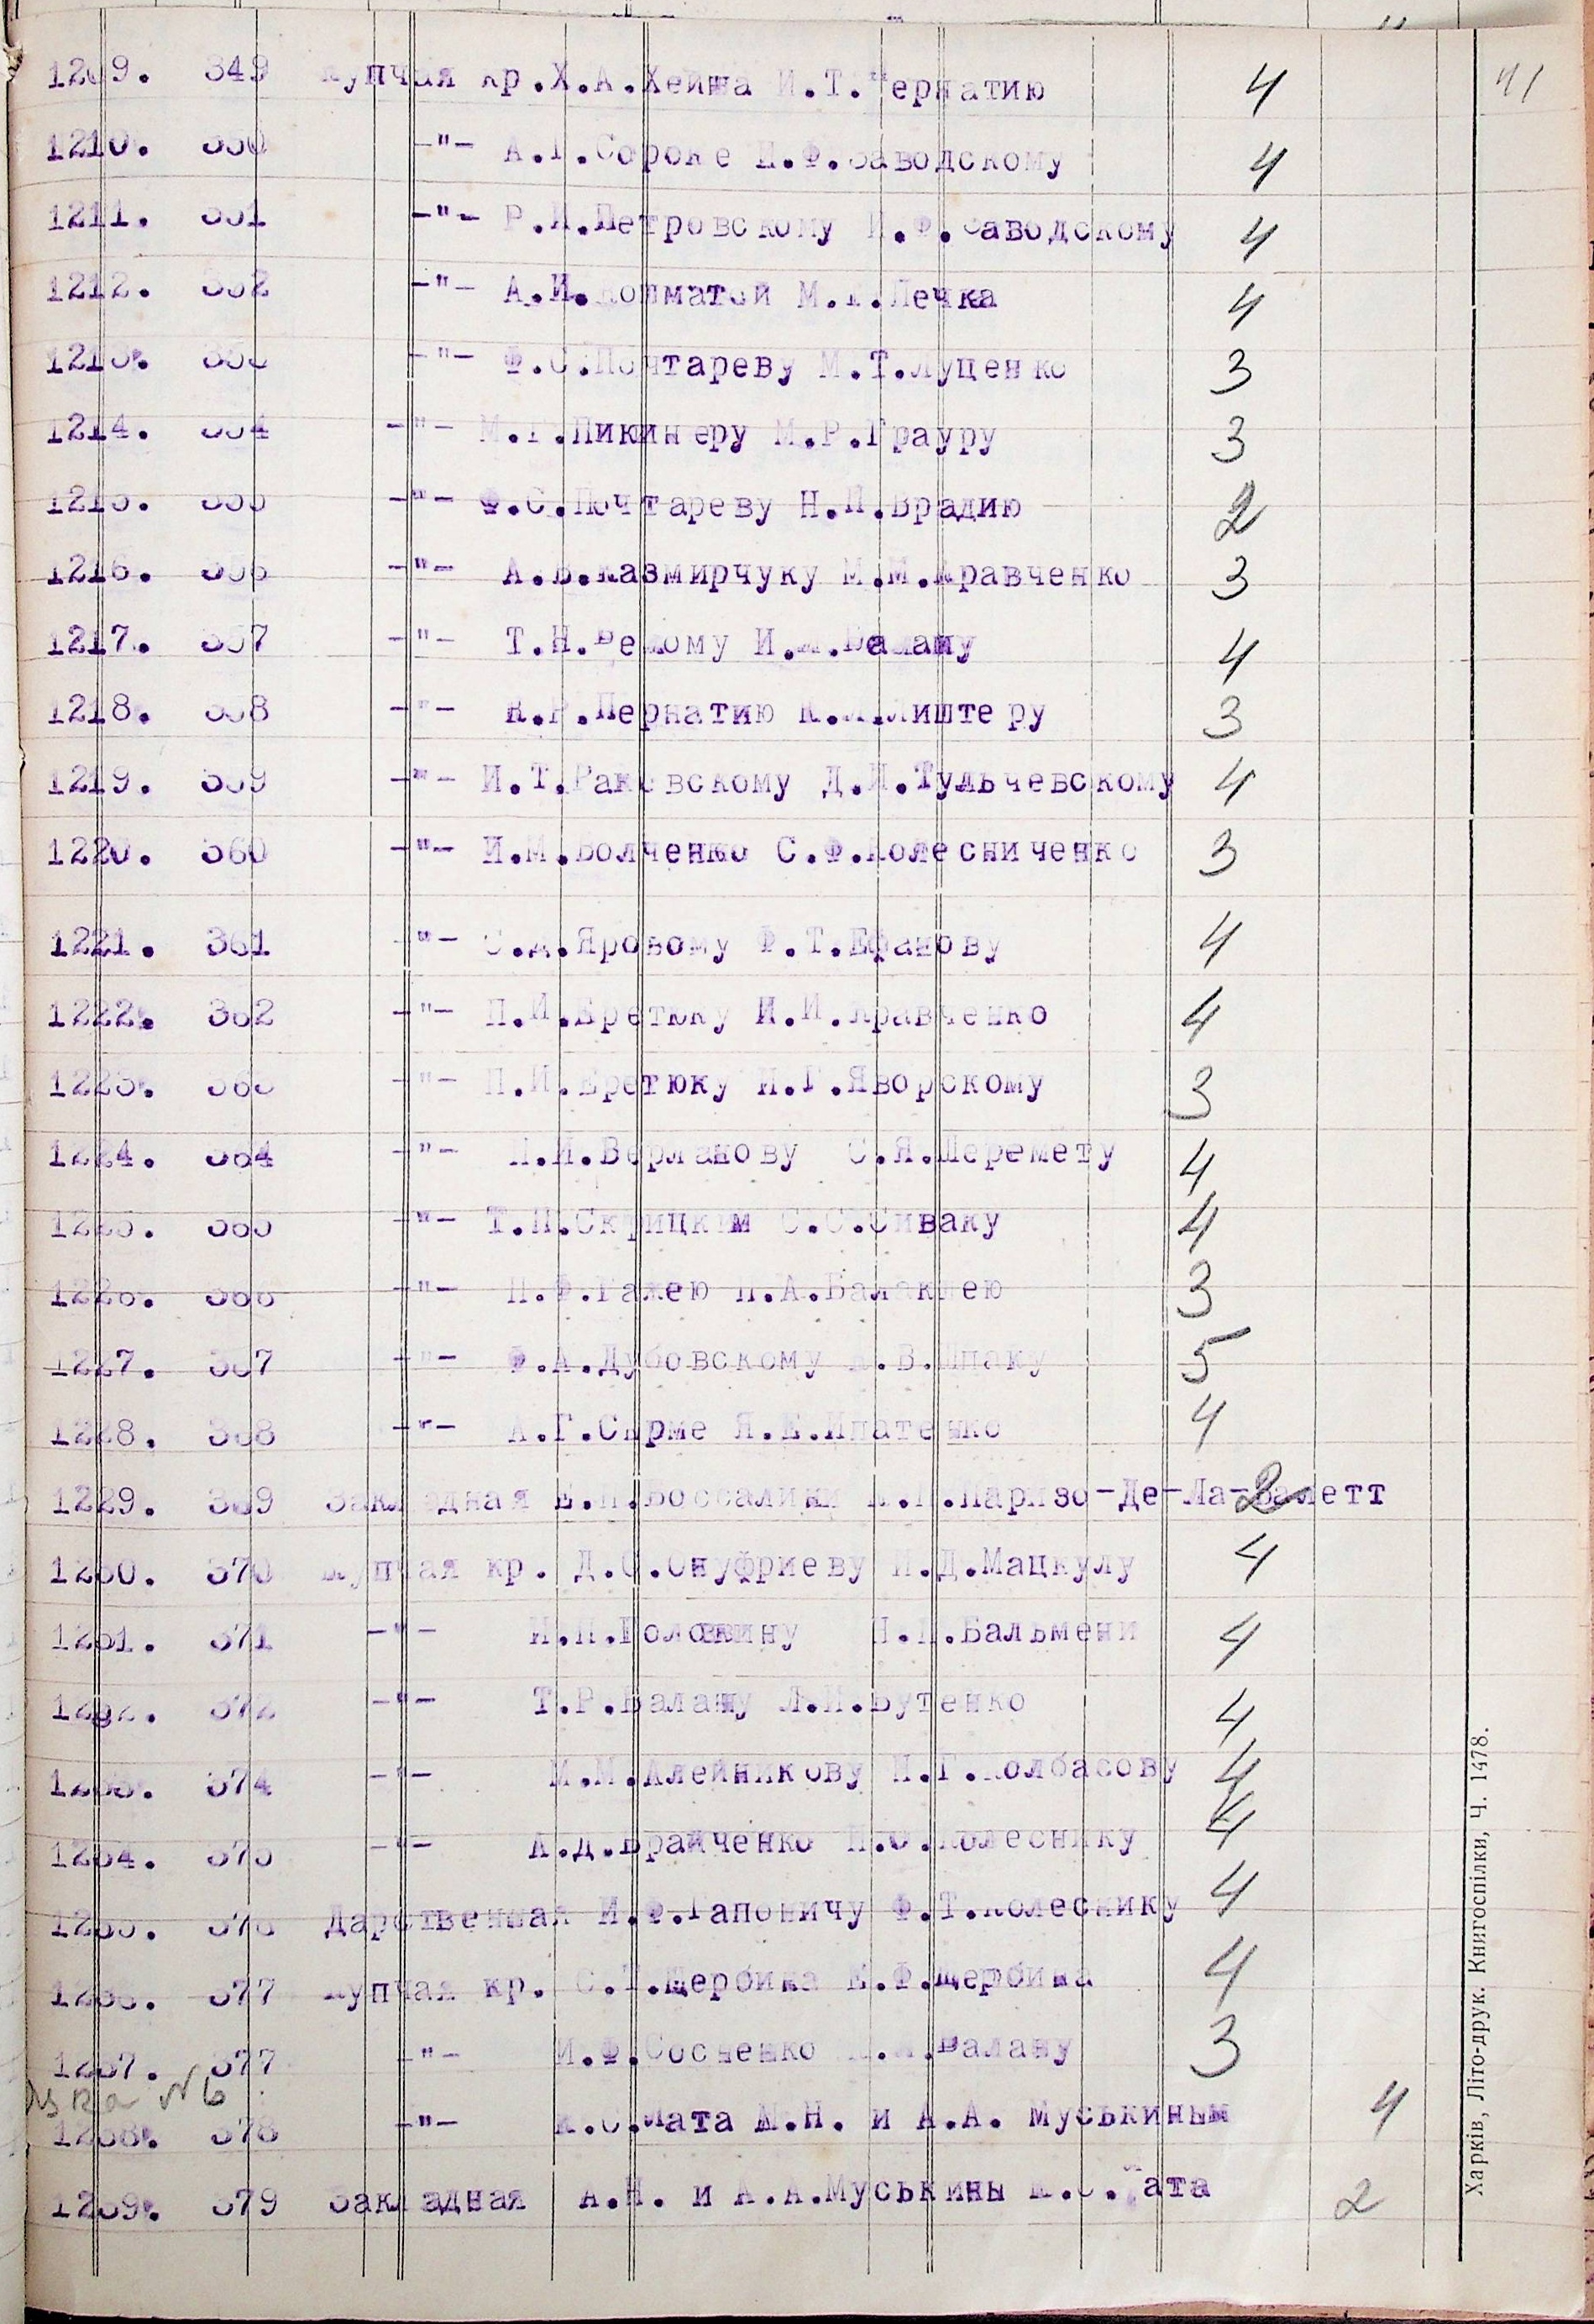 41
1209. 349 Купчая кр.Х.А.Хейша И.Т.Пернатию 4
1210. 350 -"- А.Г.Сороке И.Ф.Заводскому 4
1211. 351 -"- Р.И.Петровскому И.Ф.Заводскому 4
1212. 352 -"- А.И. М.Г.Лечка 4
1213. 353 -"- Ф.С.Почтареву М.Т.Луценко 3
1214. 354 -"- М.Г.Пикинеру М.Р.Грауру 3
1215. 355 -"- Ф.С.Почтареву Н.П.Врадию 2
1216. 356 -"- А.В.Казмирчуку М.М.Кравченко 3
1217. 357 -"- Т.Н. Балашу 4
1218. 358 -"- К.Р.Пернатию Листеру 3
1219. 359 -"- И.Т.Раковскому Д.И.Тульчевскому 4
1220. 360 -"- И.М.Волченко С.Ф.Колесниченко 3
1221. 361 -"- Яровому Ф.Т.Ефанову 4
1222. 362 -"- П.И.Еретюку И.И.Кравченко 4
1223. 363 -"- П.И.Еретюку И.Г.Яворскому 3
1224. 364 -"- П.И.Верланову С.Я.Шеремету 4
1225. 365 -"- Т.П.Скрицким С.С.Сиваку 4
1226. 366 -"- П.Ф. П.А. 3
1227. 367 -"- Ф.А.Дубовскому В.Шпаку 5
1228. 368 -"- А.Г.Сырме Я.Е.Ипатенко 4
1229. 369 Закладная Боссалини Паризо-Де-Ла-Валетт 2
1230. 370 Купчая кр. Д.С.Онуфриеву П.Д.Мацкулу 4
1231. 371 -"- И.П.Головкину Бальмени 4
1232. 372 -"- Т.Р.Балашу Л.И.Бутенко 4
1233. 374 -"- И.М.Алейникову П.Г.Колбасову 4
1234. 375 -"- А.Д.Крайченко Колеснику 4
1235. 376 Дарственная И.Ф.Гапоничу Ф.Т.Колеснику 4
1236. 377 Купчая кр. С.Т.Щербина Е.Ф.Щербина 4
1237. 377 -"- И.Ф.Сосненко 3
№ 6
1238. 378 -"- К.С.Мата А.Н. и А.А. Муськиным 4
1239. 379 Закладная А.Н. и А.А.Муськины К.С.Мата 2
Харків, Літо-друк. Книгоспілки, Ч. 1478.